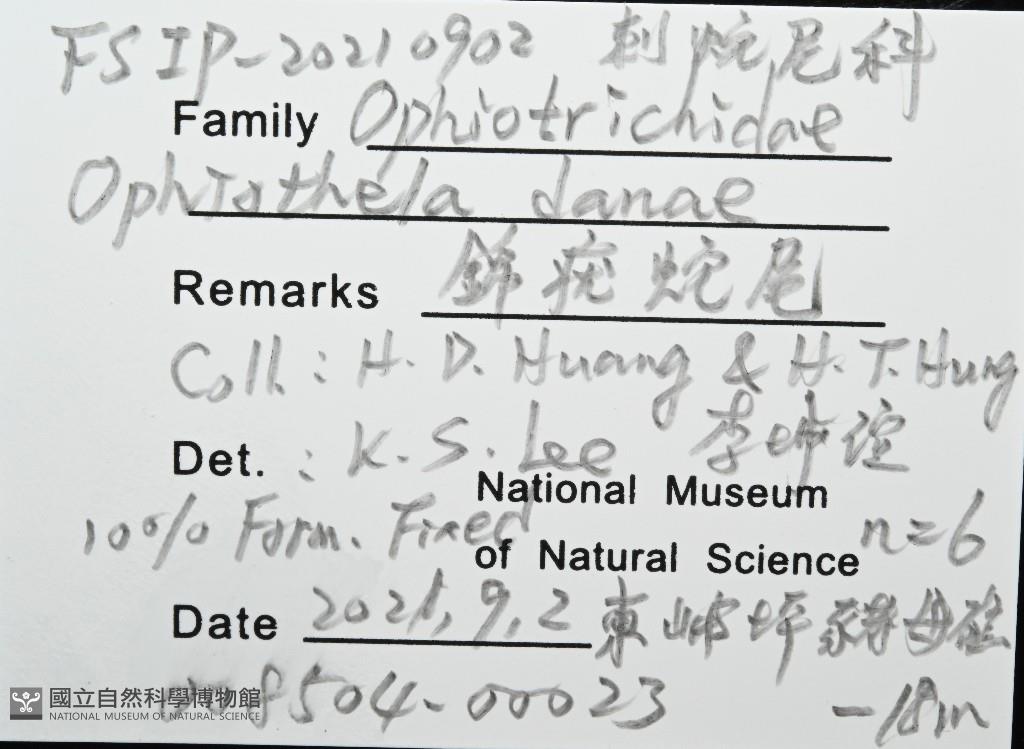 FSIP-20210902 刺蛇尾科
Family Ophiotrichidae
Ophiothela danae
Remarks 錦疣蛇尾
Coll.: H. D. Huang & H. T. Hung
Det. : K. S. Lee 李坤瑄
National Museum
10% Form. Fixed
of Natural Science n=6
Date 2021, 9, 2 東嶼坪豬母礁
8504-00023
-18m
國立自然科學博物館
NATIONAL MUSEUM OF NATURAL SCIENCE